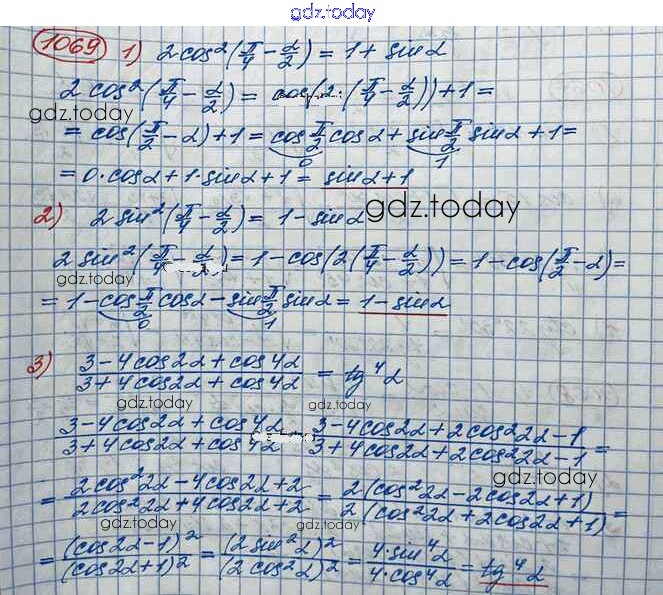 gdz.today
1069 1) 2cos²(π/4 - α/2) = 1 + sinα
2cos²(π/4 - α/2) = cos(2·(π/4 - α/2)) + 1 =
gdz.today
= cos(π/2 - α) + 1 = cos π/2 cosα + sin π/2 sinα + 1 =
0 1
= 0·cosα + 1·sinα + 1 = sinα + 1
2) 2sin²(π/4 - α/2) = 1 - sinα gdz.today
2sin²(π/4 - α/2) = 1 - cos(2(π/4 - α/2)) = 1 - cos(π/2 - α) =
gdz.today
= 1 - cos π/2 cosα - sin π/2 sinα = 1 - sinα
0 1
3) (3 - 4cos2α + cos4α)/(3 + 4cos2α + cos4α) = tg⁴α
gdz.today gdz.today
(3 - 4cos2α + cos4α)/(3 + 4cos2α + cos4α) = (3 - 4cos2α + 2cos²2α - 1)/(3 + 4cos2α + 2cos²2α - 1) =
gdz.today
= (2cos²2α - 4cos2α + 2)/(2cos²2α + 4cos2α + 2) = 2(cos²2α - 2cos2α + 1)/2(cos²2α + 2cos2α + 1) =
gdz.today gdz.today
= (cos2α - 1)²/(cos2α + 1)² = (2sin²α)²/(2cos²α)² = 4·sin⁴α/4·cos⁴α = tg⁴α